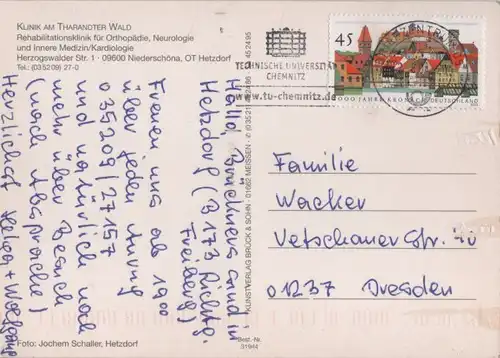 KLINIK AM THARANDTER WALD
Rehabilitationsklinik für Orthopädie, Neurologie
und Innere Medizin/Kardiologie
Herzogswalder Str. 1 · 09600 Niederschöna, OT Hetzdorf
Tel.: (03 52 09) 27-0
Hallo, Brückners sind in
Hetzdorf (B 173 Richtg.
Freiberg)
Freuen uns ab 19⁰⁰
über jeden Anruf
035209/27157
und natürlich noch
mehr über Besuch
(nach Absprache)
Herzlichst Helga + Wolfgang
Foto: Jochem Schaller, Hetzdorf
KUNSTVERLAG BRÜCK & SOHN · 01662 MEISSEN
Best.-Nr.
31944
TECHNISCHE UNIVERSITÄT
CHEMNITZ
www.tu-chemnitz.de
45
1000 JAHRE KRONACH
DEUTSCHLAND
Familie
Wacker
Vetschauer Str.
01237 Dresden